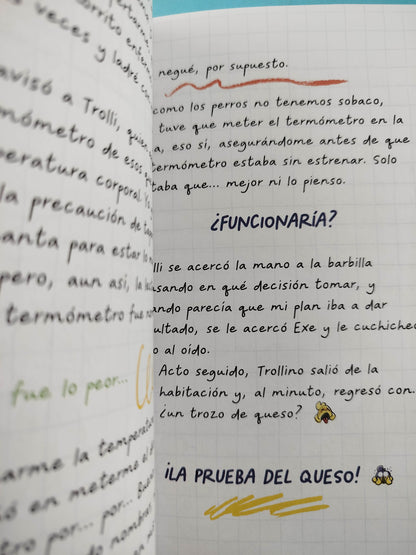 veces y ladré con
avisó a Trolli, quien
termómetro de esos
peratura corporal.
la precaución de
anta para estar lo
pero, aun así, la
termómetro fue
fue lo peor...
arme la temperatura
en meterme el
por... por...
nombre
negué, por supuesto.
como los perros no tenemos sobaco,
tuve que meter el termómetro en la
a, eso sí, asegurándome antes de que
termómetro estaba sin estrenar. Solo
taba que... mejor ni lo pienso.
¿FUNCIONARÍA?
lli se acercó la mano a la barbilla
nsando en qué decisión tomar, y
ando parecía que mi plan iba a dar
ultado, se le acercó Exe y le cuchicheó
o al oído.
Acto seguido, Trollino salió de la
habitación y, al minuto, regresó con...
¿un trozo de queso?
¡LA PRUEBA DEL QUESO!